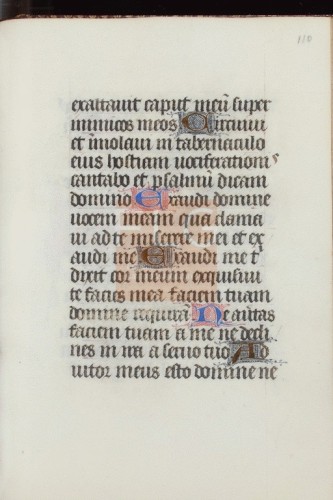 110
exaltauit caput meū super
inimicos meos Circuiui
et īmolaui in tabernaculo
eius hostiam uociferationis
cantabo et psalmū dicam
domino Exaudi domine
uocem meam qua clama
ui ad te miserere mei et ex
audi me Exaudi me t
dixit cor meum exquisiui
te facies mea faciem tuam
domine requirā Ne auertas
faciem tuam a me ne decli
nes in ira a seruo tuo Ad
iutor meus esto domine ne